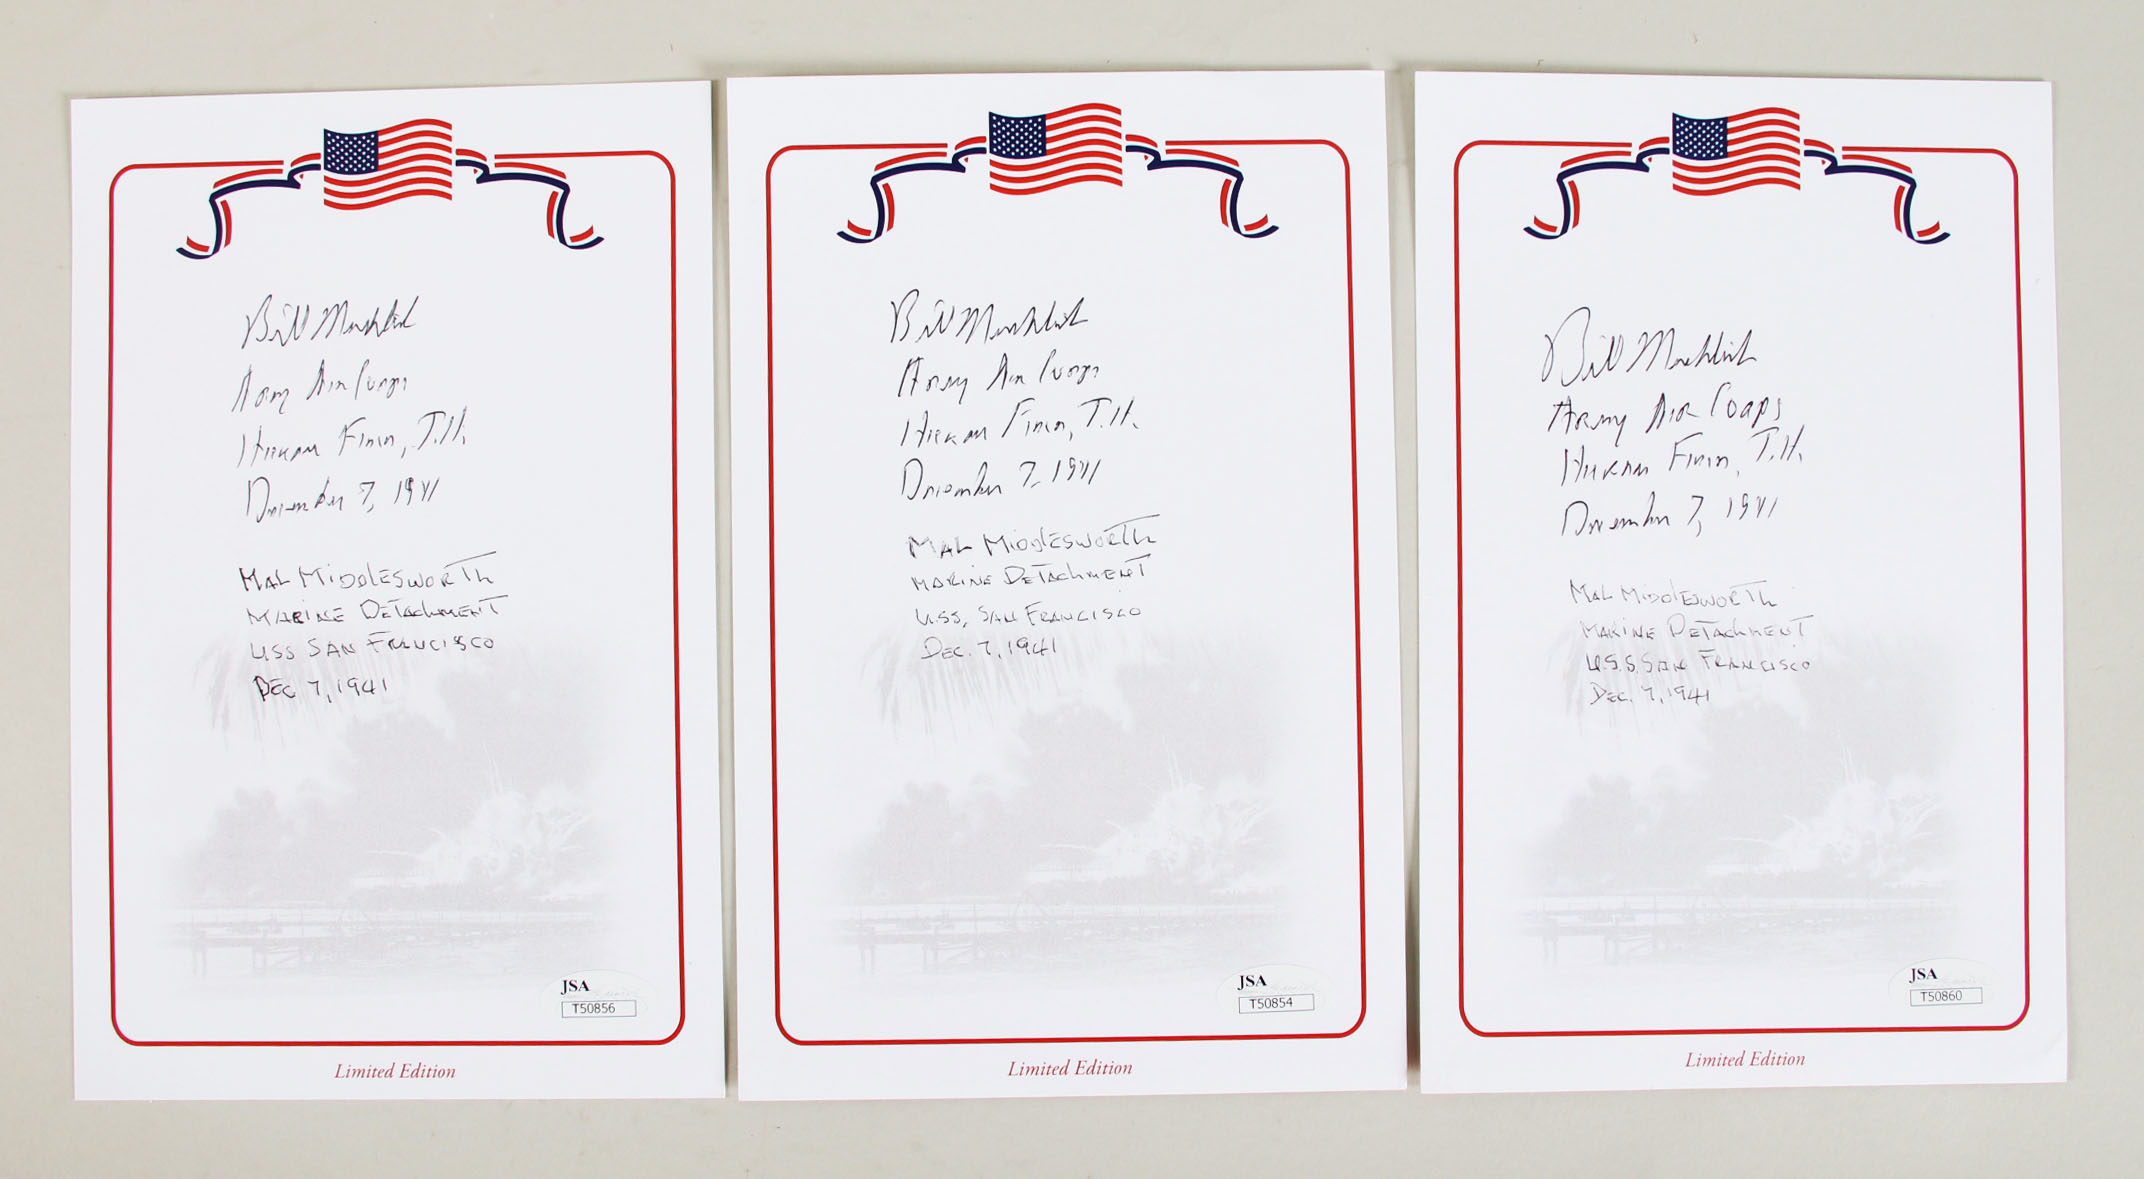 Bill
Army Air Corps
Hickam Field, T.H.
December 7, 1941
Mal Middlesworth
Marine Detachment
USS San Francisco
Dec 7, 1941
JSA
T50856
Limited Edition
Bill
Army Air Corps
Hickam Field, T.H.
December 7, 1941
Mal Middlesworth
Marine Detachment
U.S.S. San Francisco
Dec. 7, 1941
JSA
T50854
Limited Edition
Bill
Army Air Corps
Hickam Field, T.H.
December 7, 1941
Mal Middlesworth
Marine Detachment
U.S.S. San Francisco
Dec. 7, 1941
JSA
T50860
Limited Edition